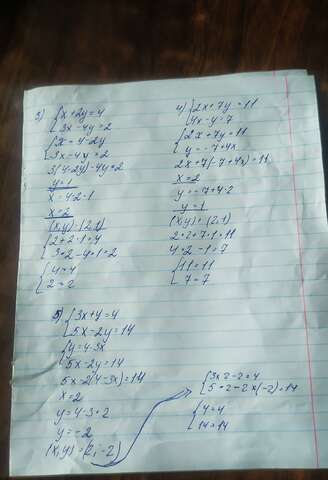 3) {x+2y=4
3x-4y=2
{x=4-2y
3x-4y=2
3(4-2y)-4y=2
y=1
x=4-2·1
x=2
(x,y)=(2,1)
{2+2·1=4
3·2-4·1=2
{4=4
2=2
4) {2x+7y=11
4x-y=7
{2x+7y=11
y=-7+4x
2x+7(-7+4x)=11
x=2
y=-7+4·2
y=1
(x,y)=(2,1)
2·2+7·1=11
4·2-1=7
{11=11
7=7
5) {3x+y=4
5x-2y=14
{y=4-3x
5x-2y=14
5x-2(4-3x)=14
x=2
y=4-3·2
y=-2
(x,y)=(2,-2)
{3·2-2=4
5·2-2×(-2)=14
{4=4
14=14